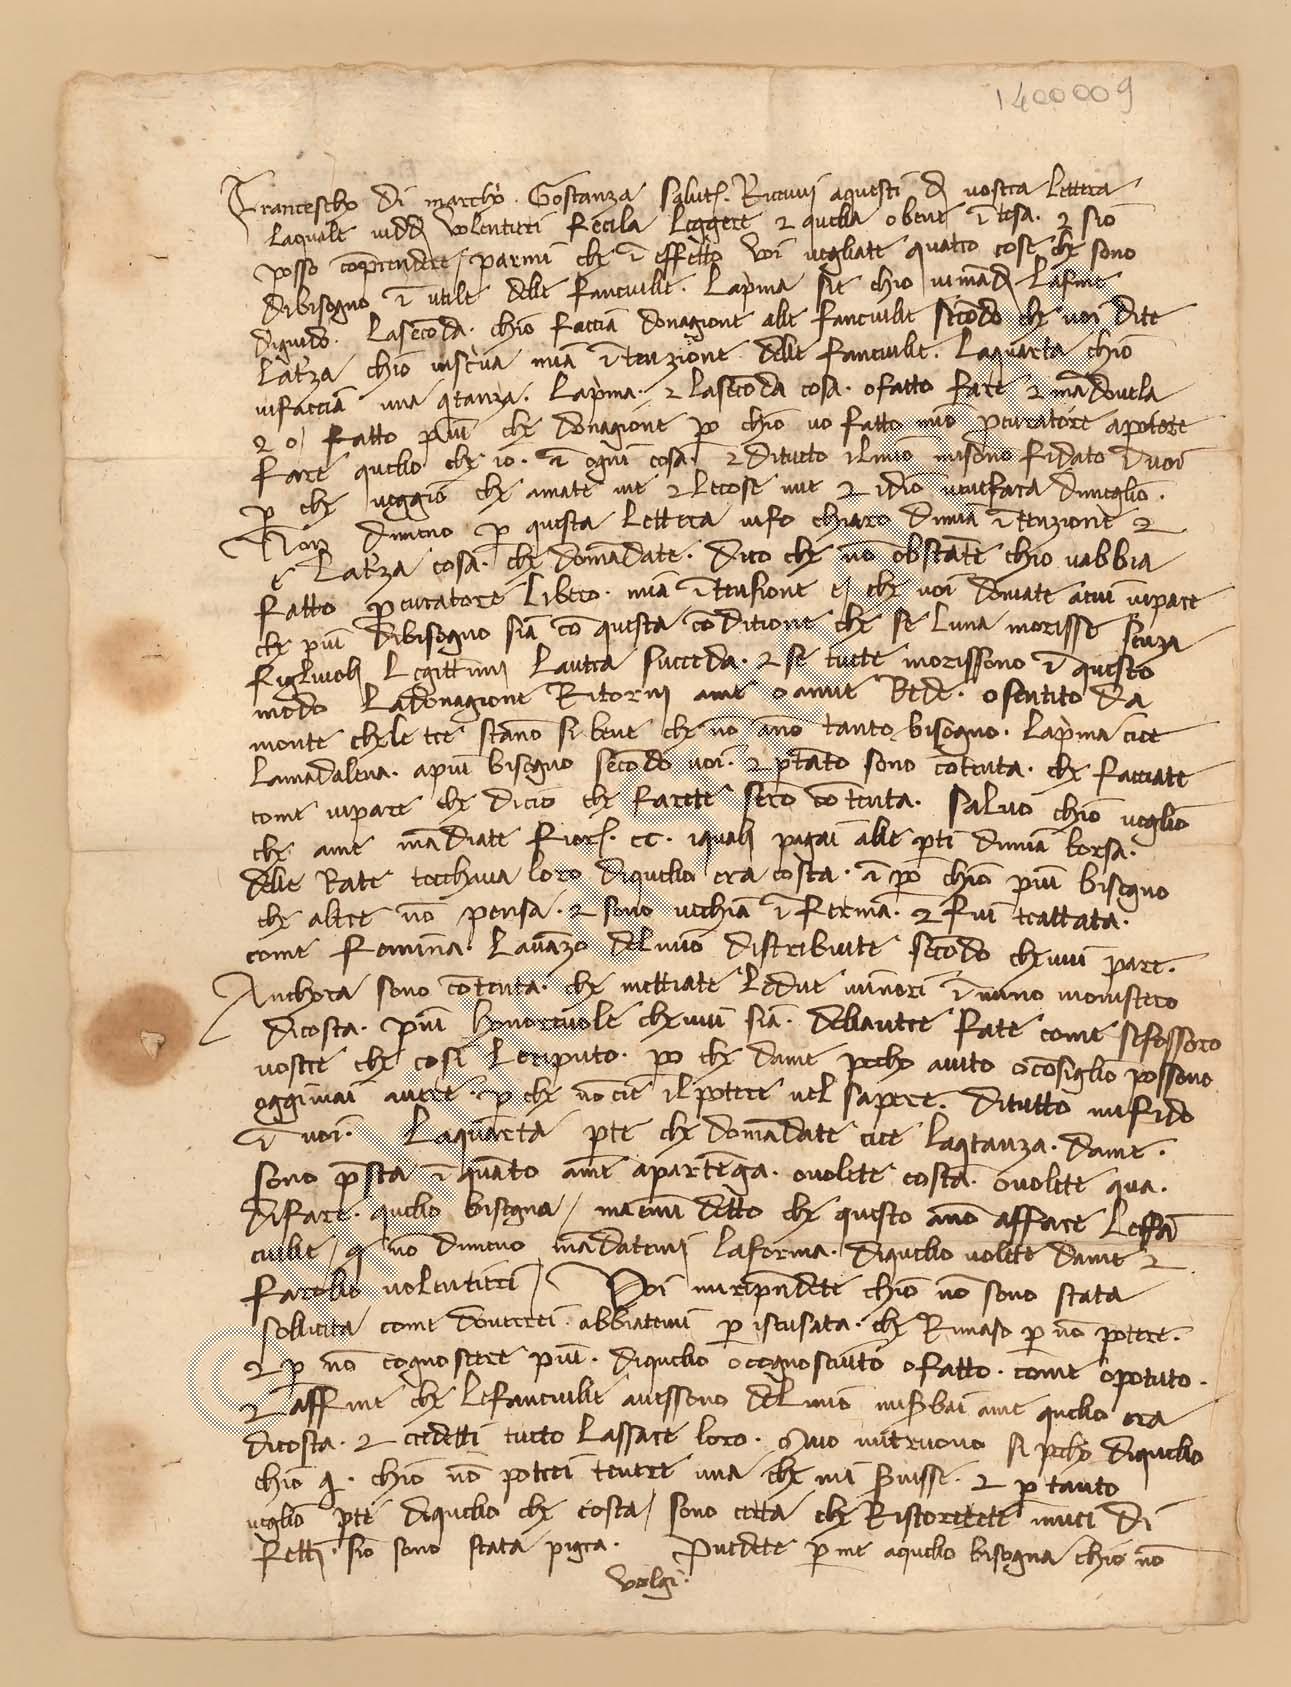 1400009
Francescho di marcho. Gostanza salut. Ricevui a questi dì vostra lettera
laquale viddi volentieri fecila leggere 2 quella o bene ītesa. 2 sio
posso cōprendere / parmi che ī effetto voi vegliate quatro cose che sono
dibisogno ī utile delle fanciulle. Laprima sie chio vimādi lafine
diguido. Lasecōda. chio faccia donagione alle fanciulle secōdo che voi dite
Laterza chio viscriva mia ītenzione delle fanciulle. Laquarta chio
vifaccia una qtanza. Laprima. 2 lasecōda cosa. ofatto fare 2 mādovela
2 o / fatto più che donagione po chio vo fatto mio pcuratore apotere
fare quello che io. ī ogni cosa. 2 ditutto ilmio misono fidato ī voi
p che veggio che amate me 2 lecose mie 2 idio
Non dimeno p questa lettera vifo chiaro dimia ītenzione 2
e laterza cosa. che domādate. dico che nō obstāte chio vabbia
fatto pcuratore libero. mia ītensione e / che voi doniate acui vipare
che più dibisogno sia cō questa cōditione che se luna morisse senza
figliuoli legittimi lautra succeda. 2 se tutte morissono ī questo
modo ladonagione ritorni ame o amie Rede. o sentito da
monte chele tre stāno si bene che nō āno tanto bisogno. Laprima cioe
lamadalena. apiu bisogno secōdo voi. 2 ptāto sono cōtenta. che facciate
come vipare che dicio che farete sero cōtenta. salvo chio veglio
che ame mādiate fior. cc. iquali pagai alle pti dimia borsa.
delle Rate tocchava loro diquello era costa. ī po chio più bisogno
che altre nō pensa. 2 sono vechia ī ferma. 2 fui trattata.
come femina. lavāzo delmio distribuite secōdo chevui pare.
Anchora sono cōtenta. che mettiate ledue minori ī uno monistero
dicosta. più honorevole chevui sia. dellautre fate come sefossoro
vostre che cosi leriputo. po che dame pocho aiuto o cōsiglio possono
oggimai avere. p che nō cie ilpotere nel sapere. ditutto mifido
ī voi. Laquarta pte che domādate cioe laqtanza. dame.
sono psta ī quāto ame apartēga. ovolete costa. ovolete qua.
difare. quello bisogna / maemi detto che questo āno affare leffā
ciulle / nō dimeno mādatemi laforma. diquello volete dame 2
farollo volentieri / Voi miripndete chio nō sono stata
sollicita come doverrei. abbiatemi p iscusata. che Rimaso p nō potere.
2 p nō cognoscere più. diquello o cognosciuto ofatto. come opotuto.
2 affine che lefanciulle avessono delmio miserbai ame quello era
dicosta. 2 credetti tutto lassare loro. Ora mitruovo si pocho diquello
chio q. chio nō potrei tenere una che mi servisse. 2 p tanto
veglio pte diquello che costa / sono certa che Ristorerete imiei di
fetti. sio sono stata pigra. Puedete p me aquello bisogna chio nō
volgi.